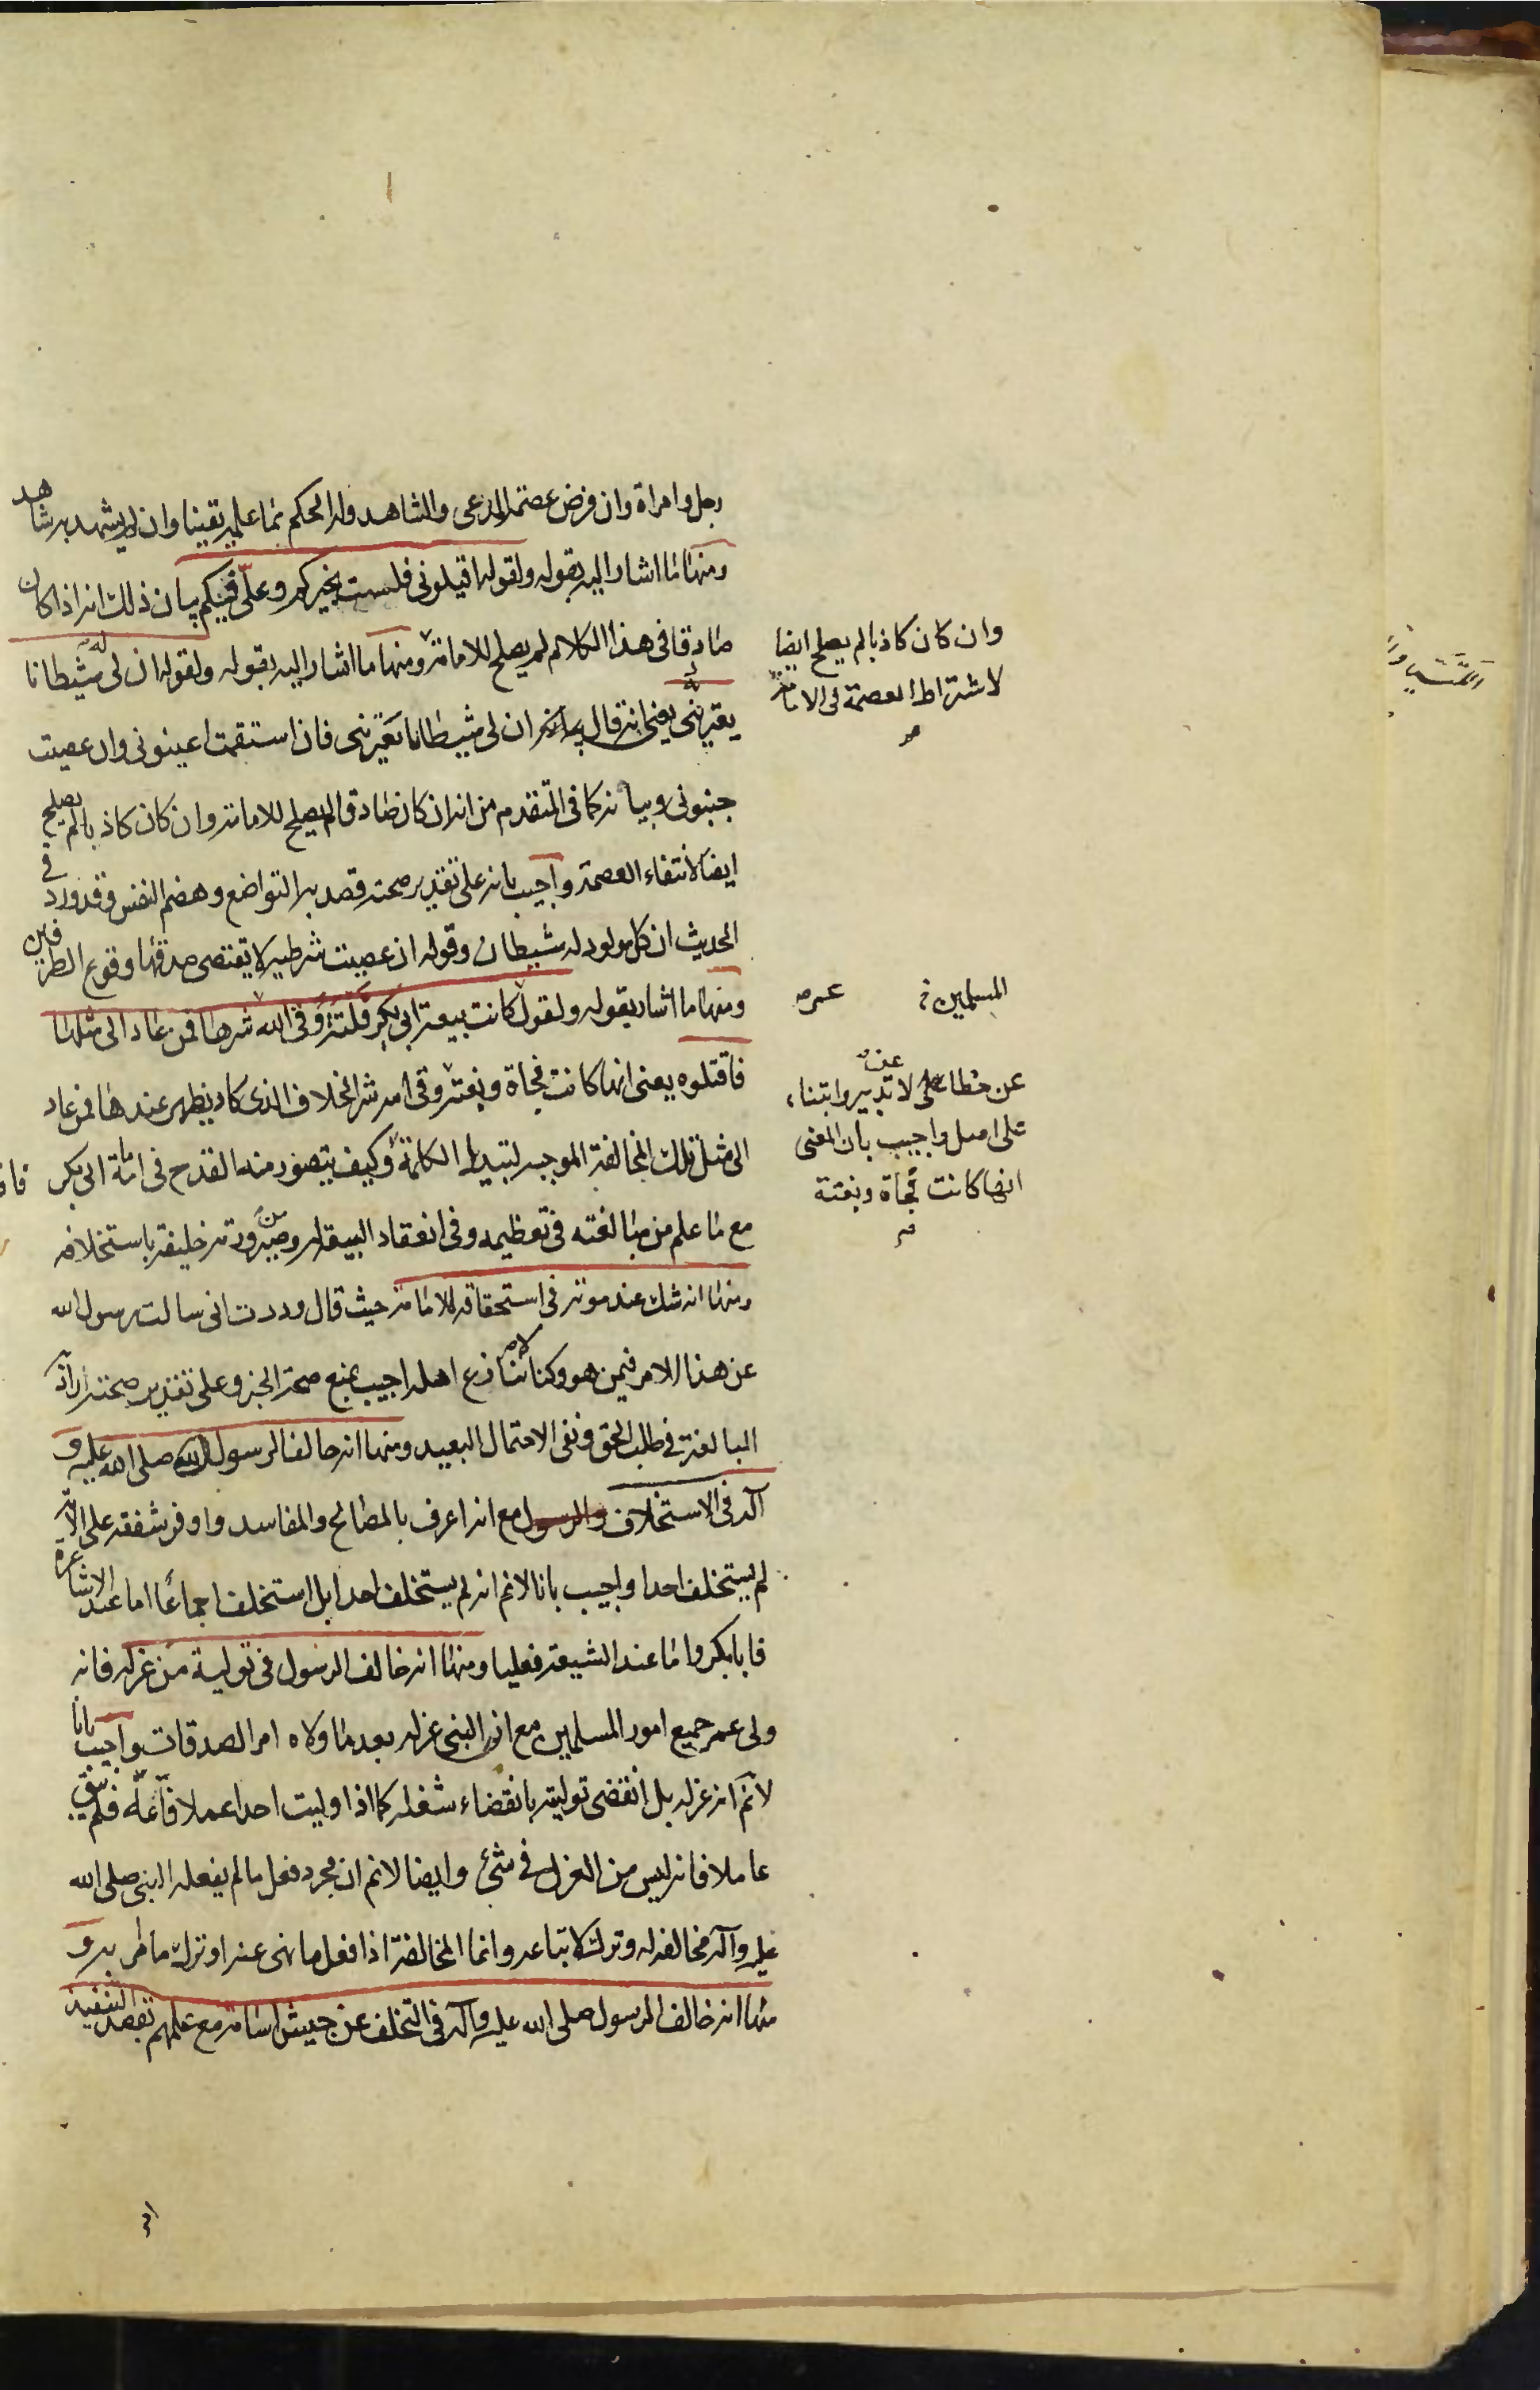 رجل وامراة وان فرض عصمة المدعى والشاهد وله الحكم بما علمه يقينا وان لم يشهد به شاهد
ومنها ما اشار اليه بقوله ولقوله اقيلونى فلست بخيركم وعلى فيكم بيان ذلك انه اذا كان
صادقا فى هذا الكلام لم يصلح للامامة ومنها ما اشار اليه بقوله ولقوله ان لى شيطانا
يعترينى يعنى انه قال ان لى شيطانا يعترينى فان استقمت اعينونى وان عصيت
جنبونى وبيانه كما فى المتقدم من انه ان كان صادقا لم يصلح للامامة وان كان كاذبا لم يصلح
ايضا لانتفاء العصمة واجيب بانه على تقدير صحته قصد به التواضع وهضم النفس وقد ورد فى
الحديث ان كل مولود له شيطان وقوله ان عصيت شرطية لا يقتضى صدقها وقوع الطرفين
ومنها ما اشار بقوله ولقول كانت بيعة ابى بكر فلتة وقى الله شرها فمن عاد الى مثلها
فاقتلوه يعنى انها كانت فجاة وبغتة وقى الله شر الخلاف الذى كاد يظهر عندها فمن عاد
الى مثل تلك المخالفة الموجبه لتبديل الكلمة وكيف يتصور منه القدح فى امامة ابى بكر
مع ما علم من مبالغته فى تعظيمه وفى انعقاد البيعة له ومن صيرورته خليفة باستخلافه
ومنها انه شك عند موته فى استحقاقه للامامة حيث قال وددت انى سالت رسول الله
عن هذا الامر فيمن هو وكنا لا ننازع اهله اجيب بمنع صحة الخبر وعلى تقدير صحته اراد به
المبالغة فى طلب الحق ونفى الاحتمال البعيد ومنها انه خالف الرسول الله صلى الله عليه و
آله فى الاستخلاف والرسول مع انه اعرف بالمصالح والمفاسد واوفر شفقه على الامة
لم يستخلف احدا واجيب بانا لانم انه لم يستخلف احدا بل استخلف اجماعا اما عند الاشاعره
فابابكر واما عند الشيعة فعليا ومنها انه خالف الرسول فى تولية من عزله فانه
ولى عمر جميع امور المسلمين مع ان النبى عزله بعد ما ولاه امر الصدقات واجيب بانا
لانم انه عزله بل انقضى توليته بانقضاء شغله كما اذا وليت احدا عملا فاتمه فلم يبق
عاملا فانه ليس من العزل فى شئ وايضا لانم ان مجرد فعل ما لم يفعله النبى صلى الله
عليه وآله مخالفة له وترك لاتباعه وانما المخالفة اذا فعل ما نهى عنه او ترك ما امر به و
منها انه خالف الرسول صلى الله عليه وآله فى التخلف عن جيش اسامة مع علمهم بقصد التنفيذ
وان كان كاذبا لم يصلح ايضا
لاشتراط العصمة فى الامامة
المسلمين
عمر
عن خطا لا عن تدبير وابتناء
على اصل واجيب بان المعنى
انها كانت فجاة وبغتة